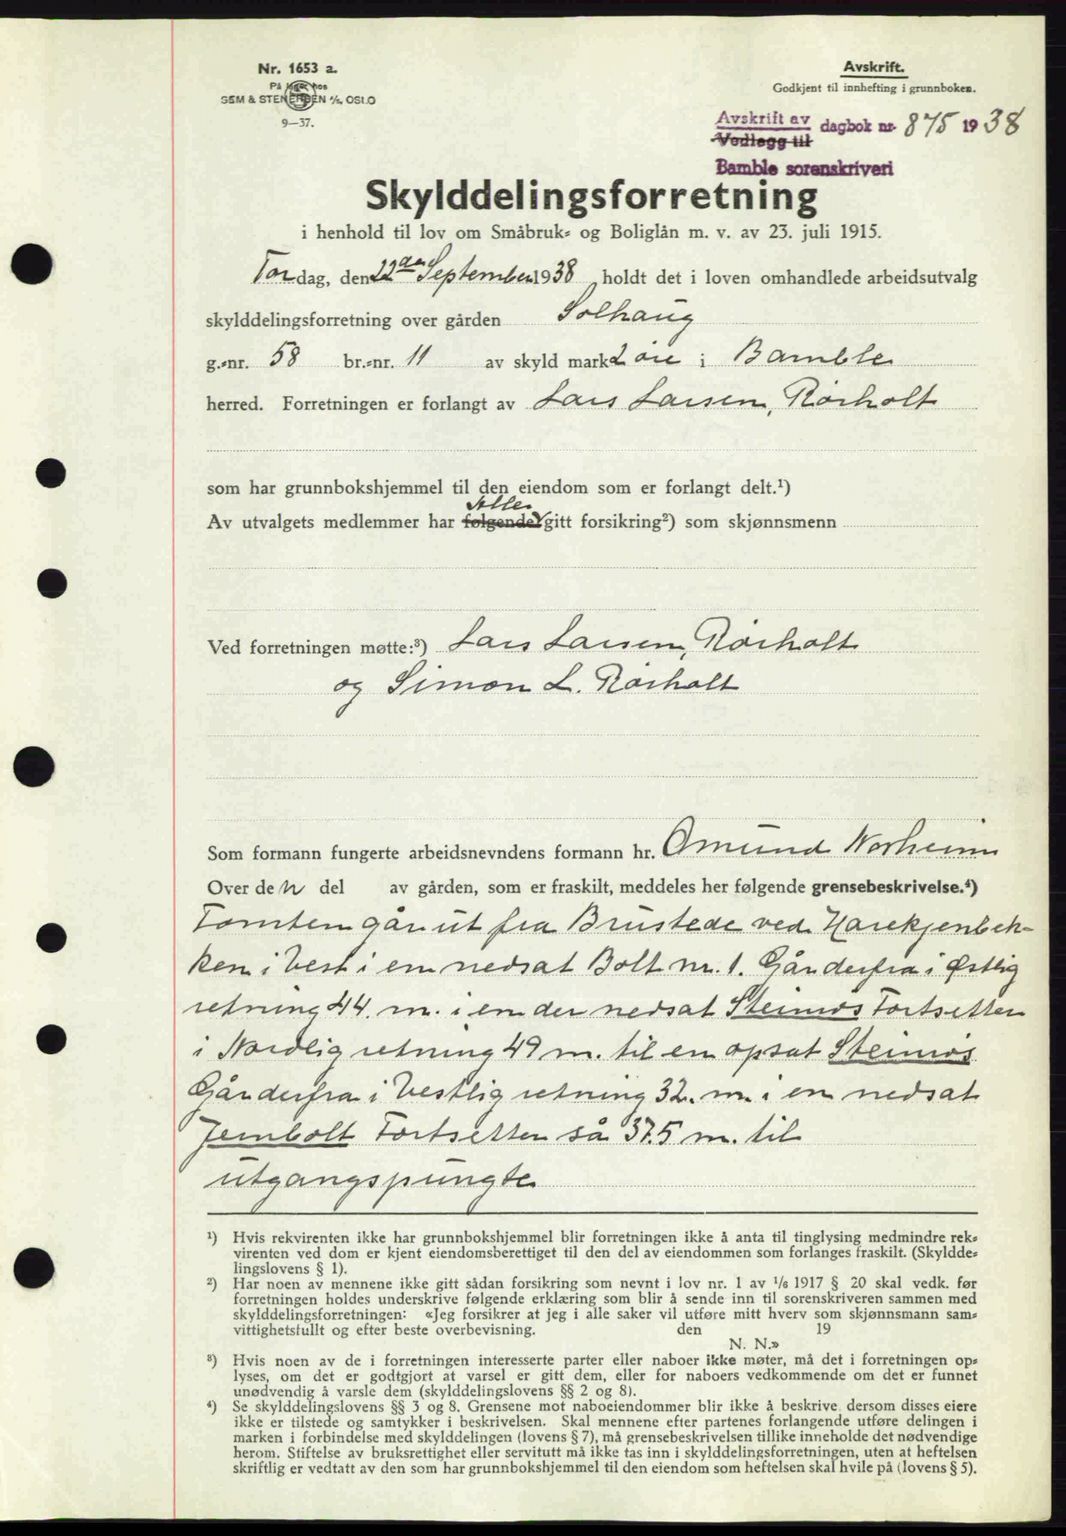 Nr. 1653 a.
På lager hos
SEM & STENERSEN A/S, OSLO
9—37.
Avskrift.
Godkjent til innhefting i grunnboken.
Avskrift av
Vedlegg til
dagbok nr. 875 1938
Bamble sorenskriveri
Skylddelingsforretning
i henhold til lov om Småbruk- og Boliglån m. v. av 23. juli 1915.
Torsdag, den 22de September 1938 holdt det i loven omhandlede arbeidsutvalg
skylddelingsforretning over gården Solhaug
g.-nr. 58 br.-nr. 11 av skyld mark 2 øre i Bamble
herred. Forretningen er forlangt av Lars Larsen, Rørholt
som har grunnbokshjemmel til den eiendom som er forlangt delt.¹)
Alle
Av utvalgets medlemmer har følgende gitt forsikring²) som skjønnsmenn
Ved forretningen møtte:³) Lars Larsen, Rørholt
og Simon L. Rørholt
Som formann fungerte arbeidsnevndens formann hr. Omund Norheim
Over den del av gården, som er fraskilt, meddeles her følgende grensebeskrivelse.⁴)
Tomten går ut fra Brustede ved Harekjenbek-
ken i Vest i em nedsat Bolt nr. 1. Går derfra i Østlig
retning 44. m. i en der nedsat Steinrøs Fortsetter
i Nordlig retning 49 m. til en opsat Steinrøs
Går derfra i Vestlig retning 32. m. i en nedsat
Jernbolt Fortsetter så 37.5 m. til
utgangspungte
¹) Hvis rekvirenten ikke har grunnbokshjemmel blir forretningen ikke å anta til tinglysing medmindre rek-
virenten ved dom er kjent eiendomsberettiget til den del av eiendommen som forlanges fraskilt. (Skyldde-
lingslovens § 1).
²) Har noen av mennene ikke gitt sådan forsikring som nevnt i lov nr. 1 av 1/6 1917 § 20 skal vedk. før
forretningen holdes underskrive følgende erklæring som blir å sende inn til sorenskriveren sammen med
skylddelingsforretningen: «Jeg forsikrer at jeg i alle saker vil utføre mitt hverv som skjønnsmann sam-
vittighetsfullt og efter beste overbevisning. den 19
N. N.»
³) Hvis noen av de i forretningen interesserte parter eller naboer ikke møter, må det i forretningen op-
lyses, om det er godtgjort at varsel er gitt dem, eller for naboers vedkommende om det er funnet
unødvendig å varsle dem (skylddelingslovens §§ 2 og 8).
⁴) Se skylddelingslovens §§ 3 og 8. Grensene mot naboeiendommer blir ikke å beskrive dersom disses eiere
ikke er tilstede og samtykker i beskrivelsen. Skal mennene efter partenes forlangende utføre delingen i
marken i forbindelse med skylddelingen (lovens § 7), må grensebeskrivelsen tillike inneholde det nødvendige
herom. Stiftelse av bruksrettighet eller servitutt må ikke tas inn i skylddelingsforretningen, uten at heftelsen
skriftlig er vedtatt av den som har grunnbokshjemmel til den eiendom som heftelsen skal hvile på (lovens § 5).